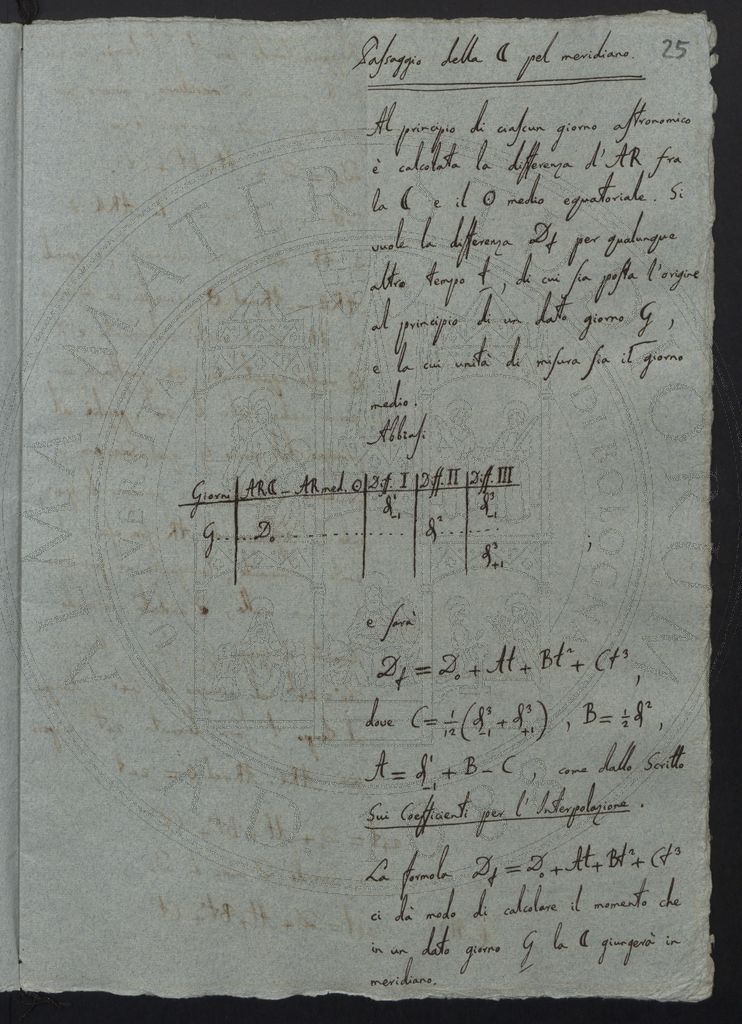 25
Passaggio della ☾ pel meridiano.
Al principio di ciascun giorno astronomico
è calcolata la differenza d'AR fra
la ☾ e il ⊙ medio equatoriale. Si
vuole la differenza Dt per qualunque
altro tempo t, di cui sia posta l'origine
al principio di un dato giorno G,
e la cui unità di misura sia il giorno
medio.
Abbiasi
Giorni | AR☾ – AR med. ⊙ | Diff. I | Diff. II | Diff. III
δ¹₋₁ δ³₋₁
G...... D₀ .................. δ² ........ ;
δ³₊₁
e sarà
Dt = D₀ + At + Bt² + Ct³,
dove C = 1/12 (δ³₋₁ + δ³₊₁), B = ½ δ²,
A = δ¹₋₁ + B – C, come dallo Scritto
Sui Coefficienti per l'Interpolazione.
La formola Dt = D₀ + At + Bt² + Ct³
ci dà modo di calcolare il momento che
in un dato giorno G la ☾ giungerà in
meridiano.